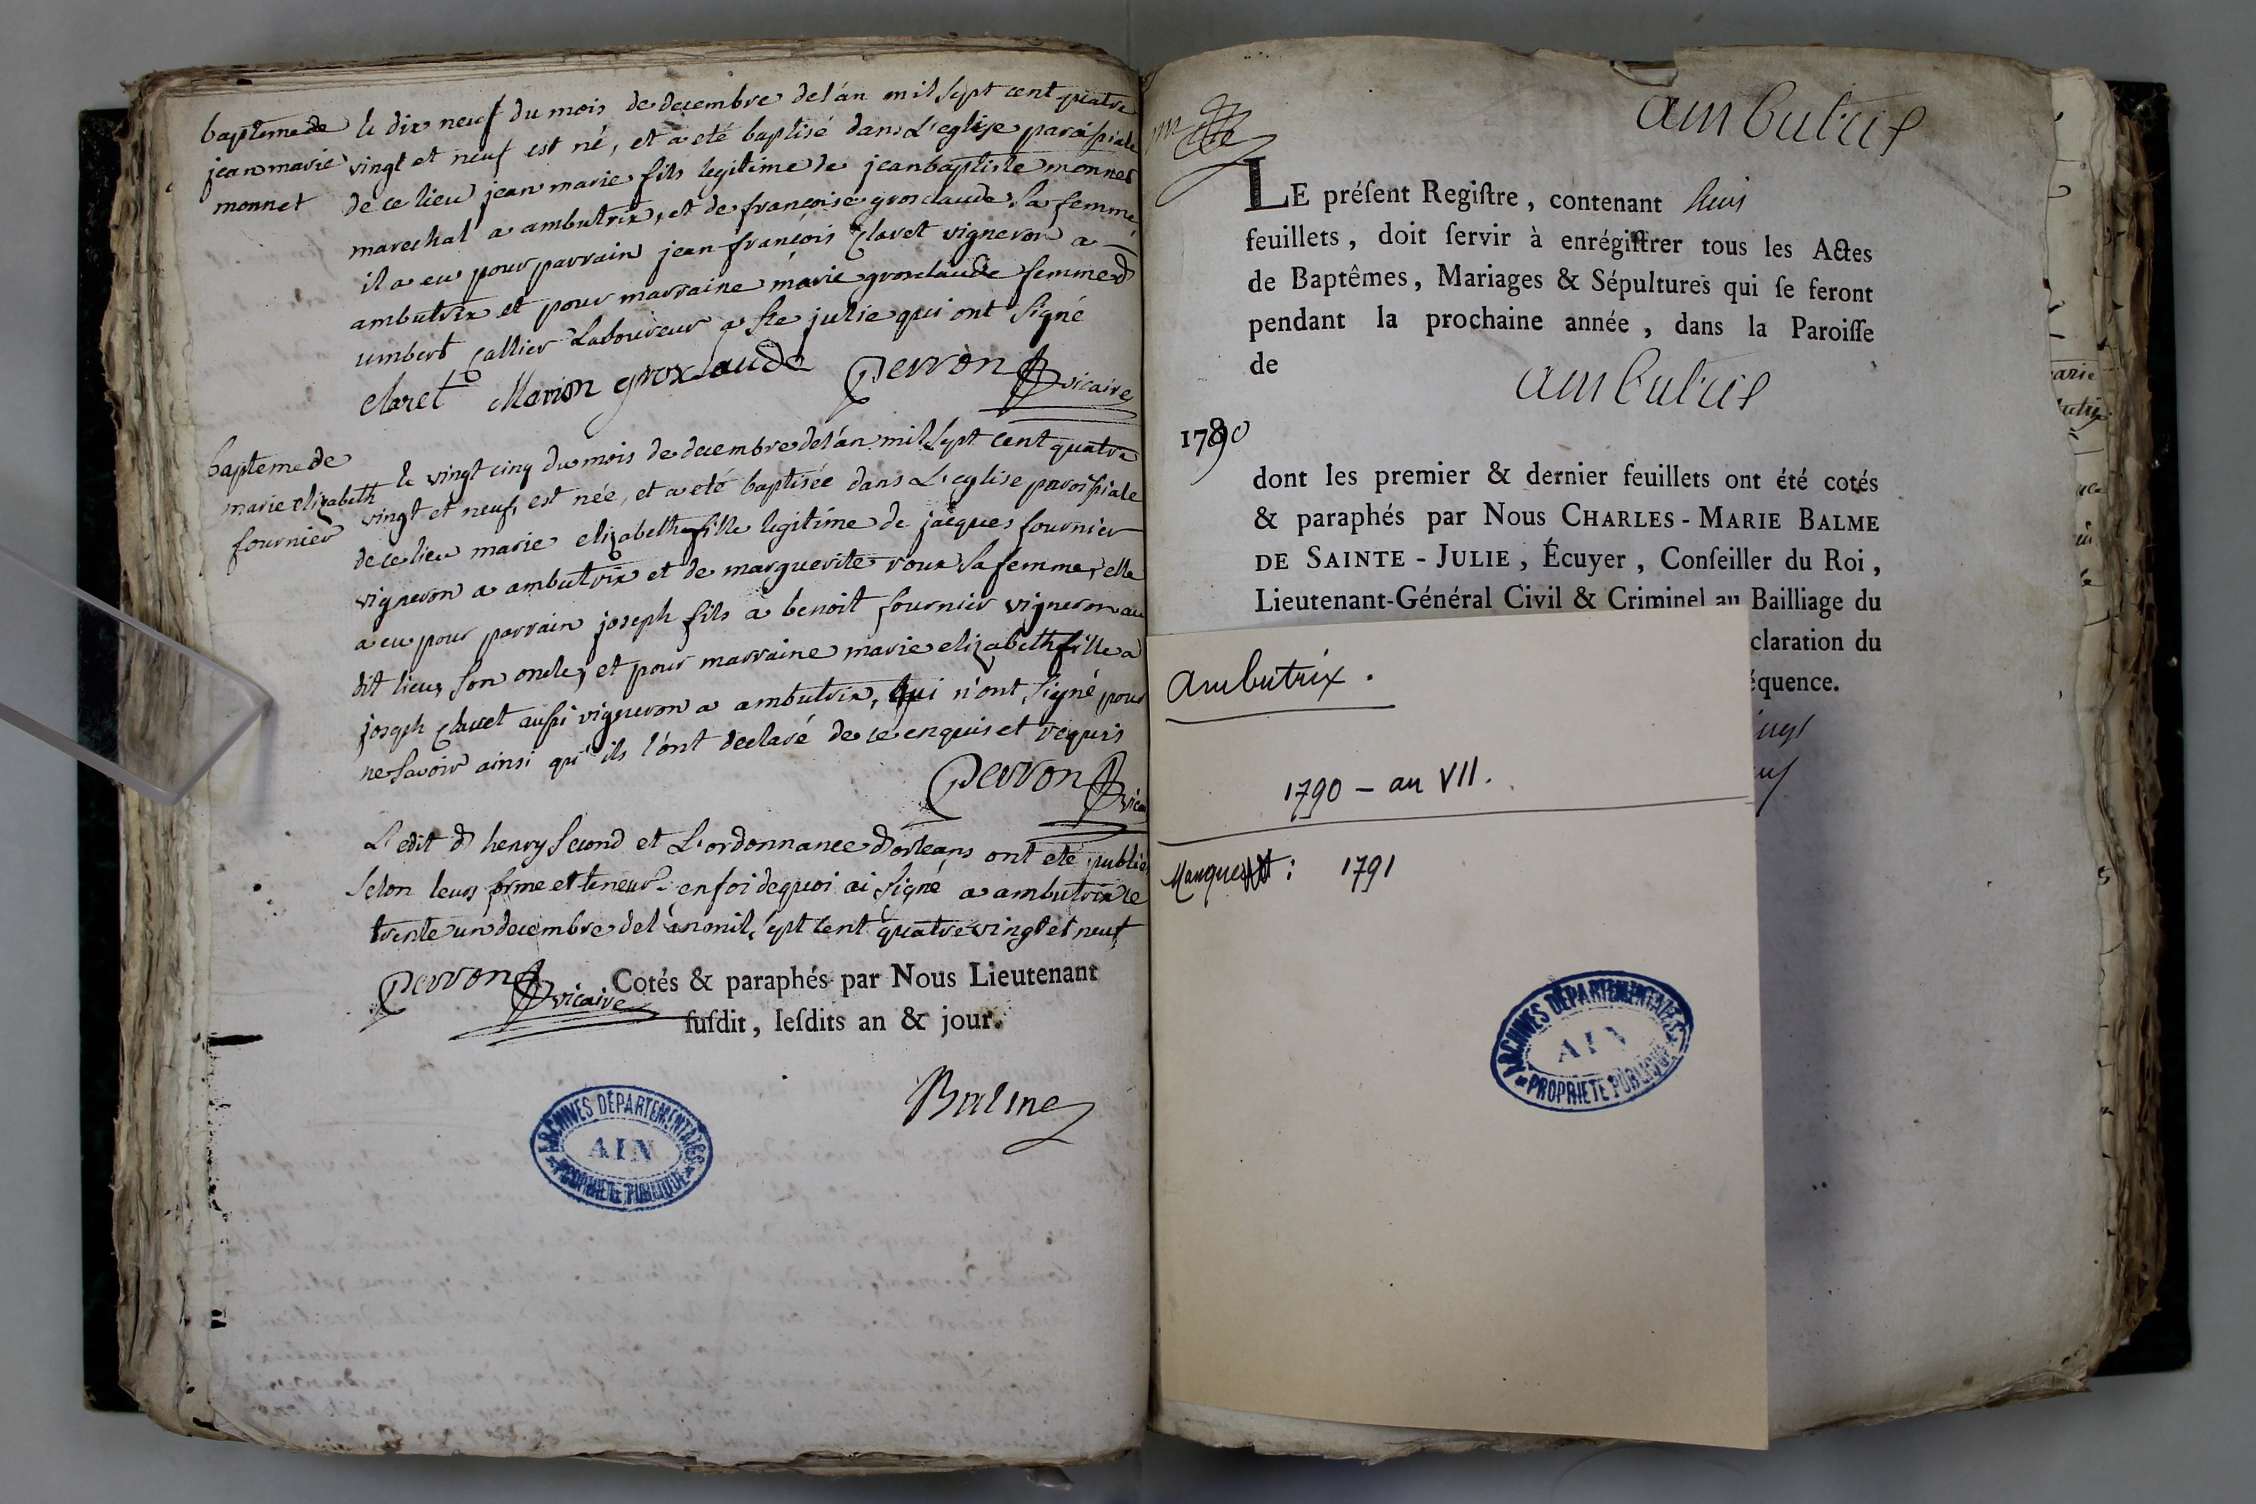 baptemede
jeanmarie
monnet
le dix neuf du mois de decembre del'an mil sept cent quatre
vingt et neuf est né, et a eté baptisé dans L'eglise paroissiale
de ce lieu jean marie fils legitime de jeanbaptiste monnet
marechal a ambutrix, et de françoise grosclaude sa femme
il a eu pour parrain jean françois Claret vigneron a
ambutrix et pour marraine marie grosclaude femme d
umbert Laboureur a ste julie qui ont signé
claret Marion groxlaude perron vicaire
baptemede
marie elizabeth
fournier
le vingt cinq du mois de decembre del'an mil sept cent quatre
vingt et neuf, est née, et a eté baptisée dans L'eglise paroissiale
de ce lieu marie elizabeth fille legitime de jacques fournier
vigneron a ambutrix et de marguerite roux sa femme, elle
a eu pour parrain joseph fils a benoit fournier vigneron au
dit lieu, son oncle, et pour marraine marie elizabeth fille a
joseph Claret aussi vigneron a ambutrix, qui n'ont signé pour
ne savoir ainsi qu'ils l'ont declaré de ce enquis et requis
perron vicai
L'edit d henry second et L'ordonnance d'orleans ont eté publiés
selon leurs forme et teneur. en foi de quoi ai signé a ambutrix le
trente un decembre del'an mil sept cent quatre vingt et neuf
perron vicaire
Cotés & paraphés par Nous Lieutenant
suſdit, leſdits an & jour.
Balme
ARCHIVES DÉPARTEMENTALES
AIN
PROPRIETE PUBLIQUE
ambutrix
LE préſent Regiſtre, contenant huit
feuillets, doit ſervir à enrégiſtrer tous les Actes
de Baptêmes, Mariages & Sépultures qui ſe feront
pendant la prochaine année, dans la Paroiſſe
de
ambutrix
1790
dont les premier & dernier feuillets ont été cotés
& paraphés par Nous CHARLES-MARIE BALME
DE SAINTE-JULIE, Écuyer, Conſeiller du Roi,
Lieutenant-Général Civil & Criminel au Bailliage du
claration du
équence.
Ambutrix.
1790 – an VII.
Manque : 1791
ARCHIVES DÉPARTEMENTALES
AIN
PROPRIETE PUBLIQUE